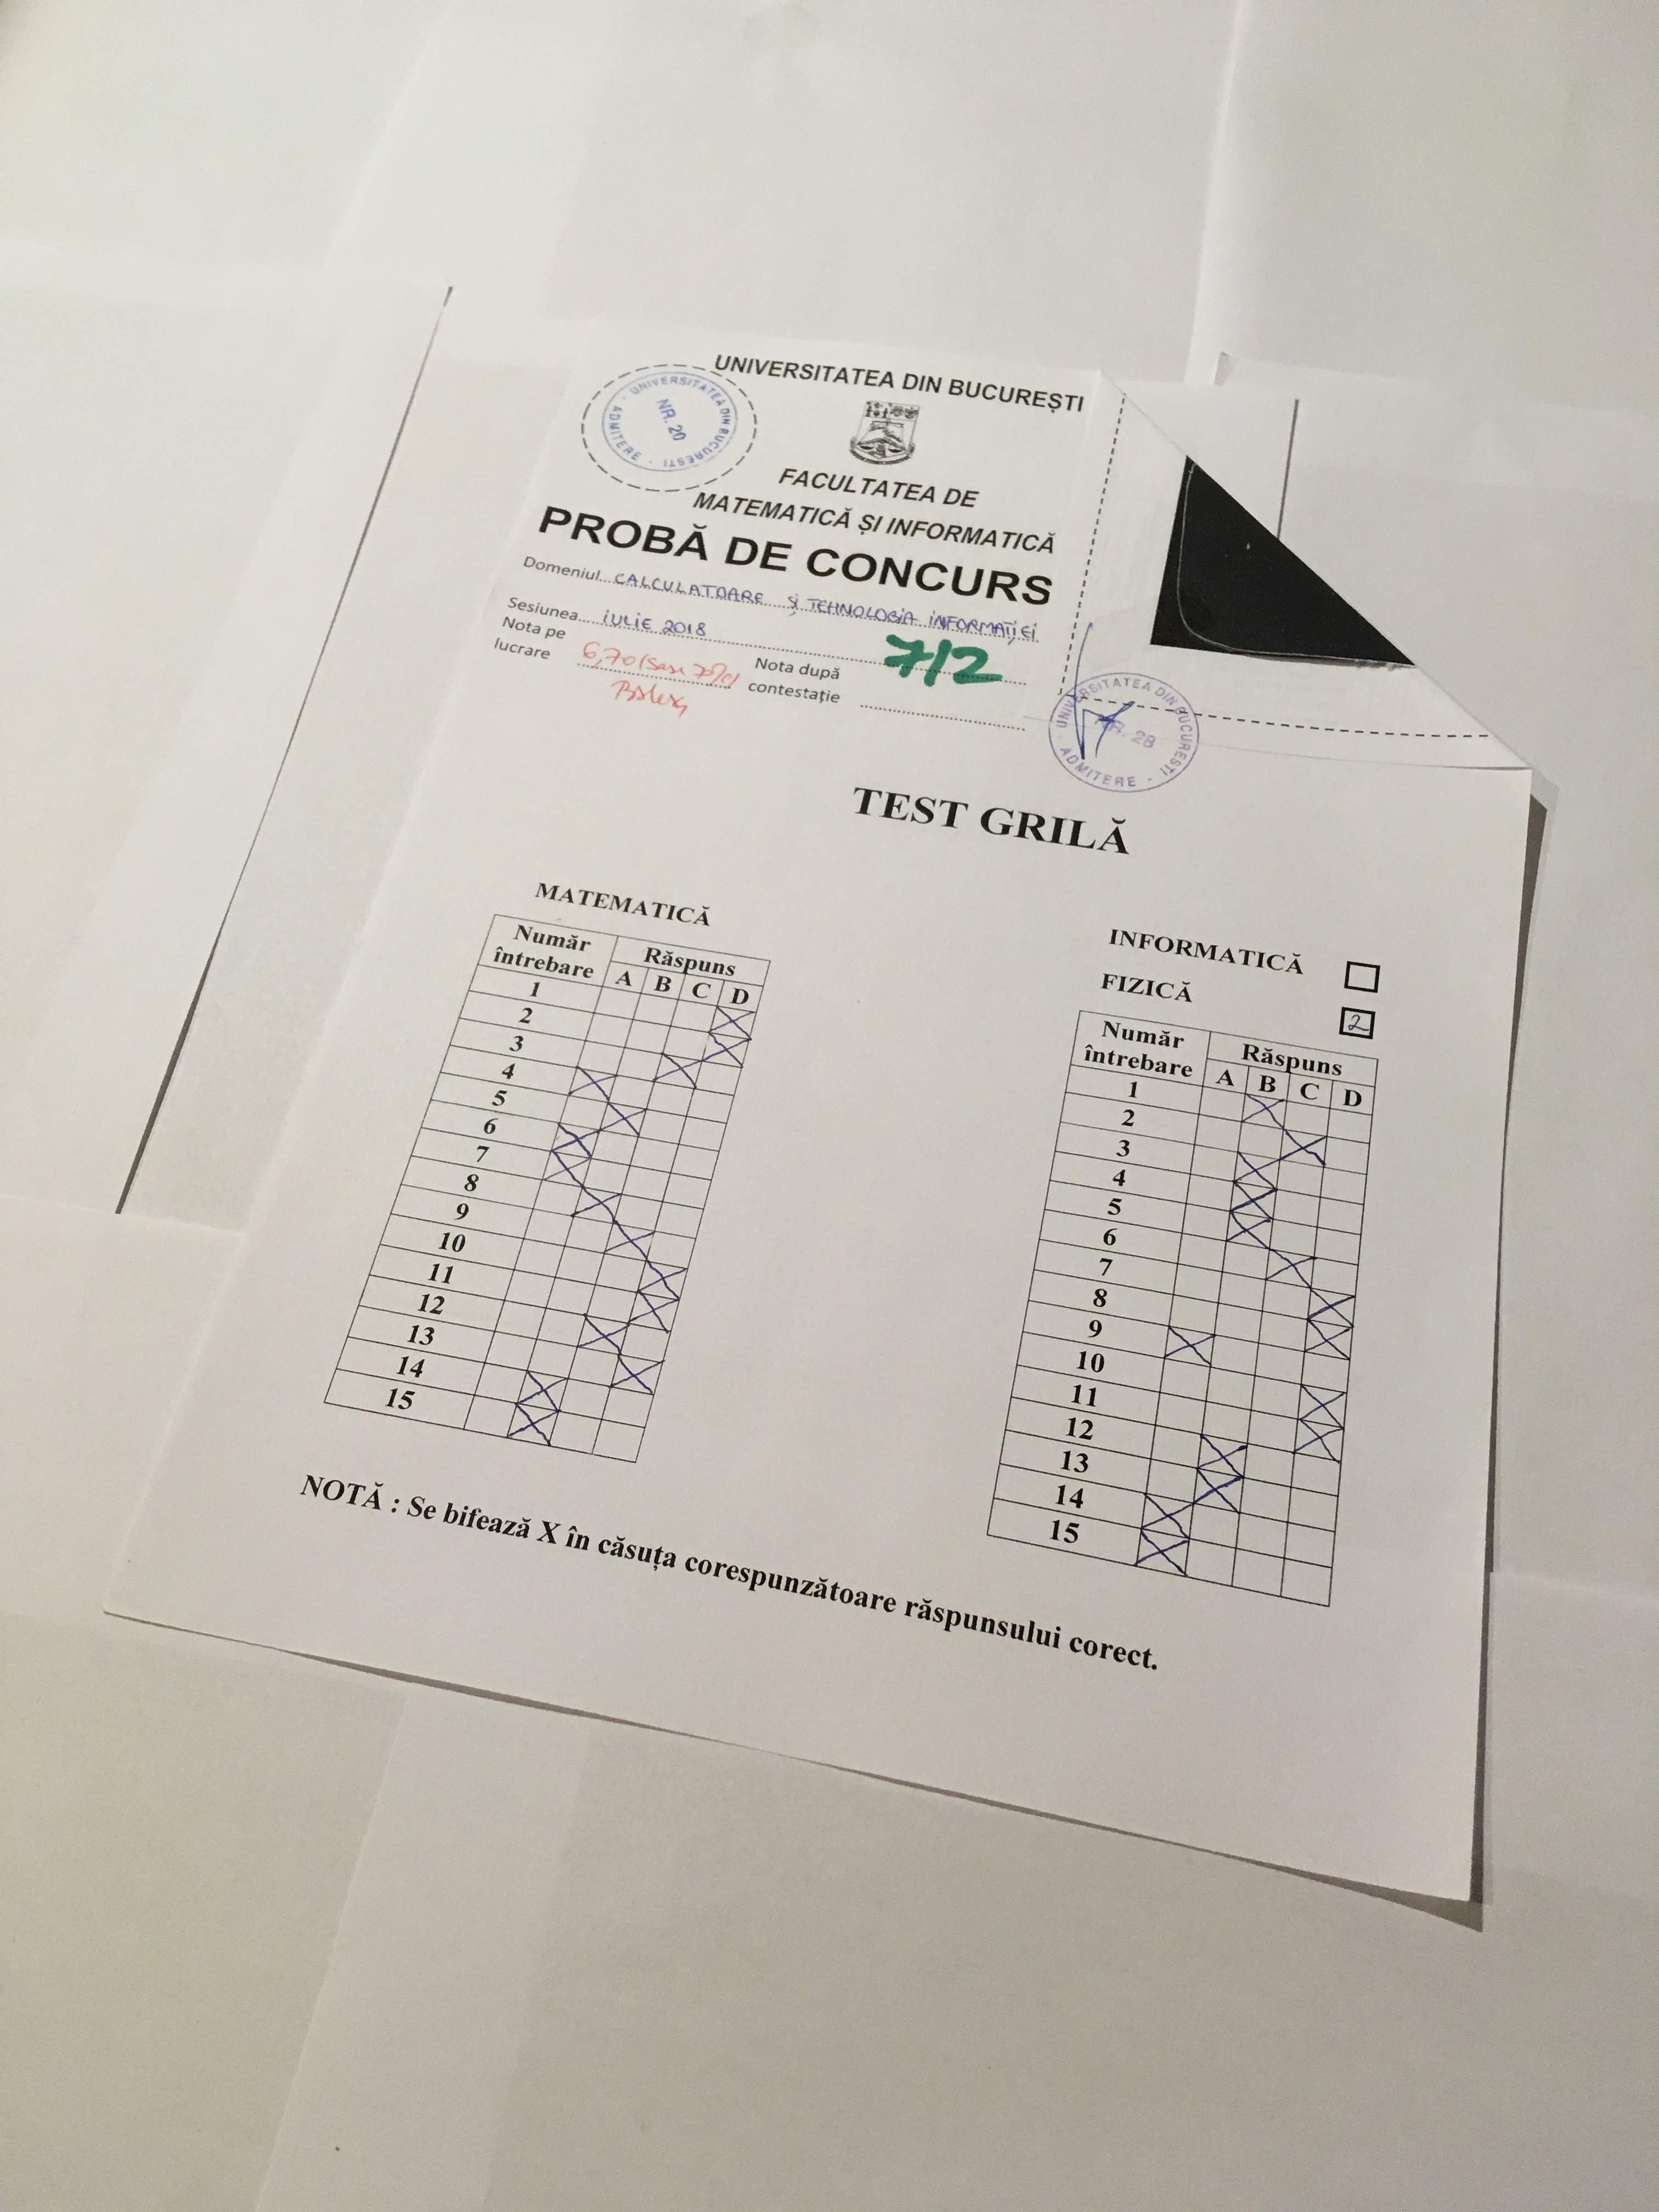 UNIVERSITATEA DIN BUCUREȘTI
UNIVERSITATEA DIN BUCURESTI - ADMITERE -
NR. 20
FACULTATEA DE
MATEMATICĂ ȘI INFORMATICĂ
PROBĂ DE CONCURS
Domeniul CALCULATOARE și TEHNOLOGIA INFORMAȚIEI
Sesiunea IULIE 2018
7/2
Nota pe lucrare 6,70 (șase 70%)
Nota după contestație
UNIVERSITATEA DIN BUCURESTI - ADMITERE -
NR. 28
TEST GRILĂ
MATEMATICĂ
Număr întrebare Răspuns
A B C D
1
2
3
4
5
6
7
8
9
10
11
12
13
14
15
INFORMATICĂ
FIZICĂ 2
Număr întrebare Răspuns
A B C D
1
2
3
4
5
6
7
8
9
10
11
12
13
14
15
NOTĂ : Se bifează X în căsuța corespunzătoare răspunsului corect.